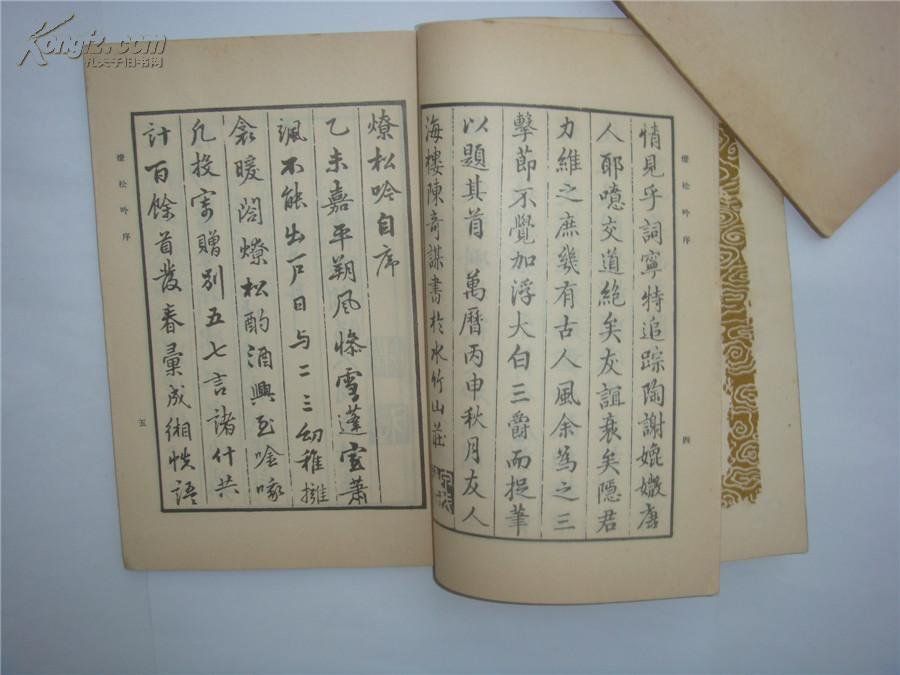 Kongfz.com
孔夫子旧书网
燎松吟序
四
情見乎詞寧特追踪陶謝媲媺唐
人耶噫交道絶矣友誼衰矣隱君
力維之庶幾有古人風余為之三
擊節不覺加浮大白三爵而捉筆
以題其首 萬曆丙申秋月友人
海樓陳奇謀書於水竹山莊
燎松吟自序
乙未嘉平朔風慘雪蓬室蕭
颯不能出戶日与二三幼稚擁
衾暖閤燎松酌酒興至唫啄
凡投寄贈別五七言諸什共
計百餘首發春彙成緗帙語
燎松吟序
五